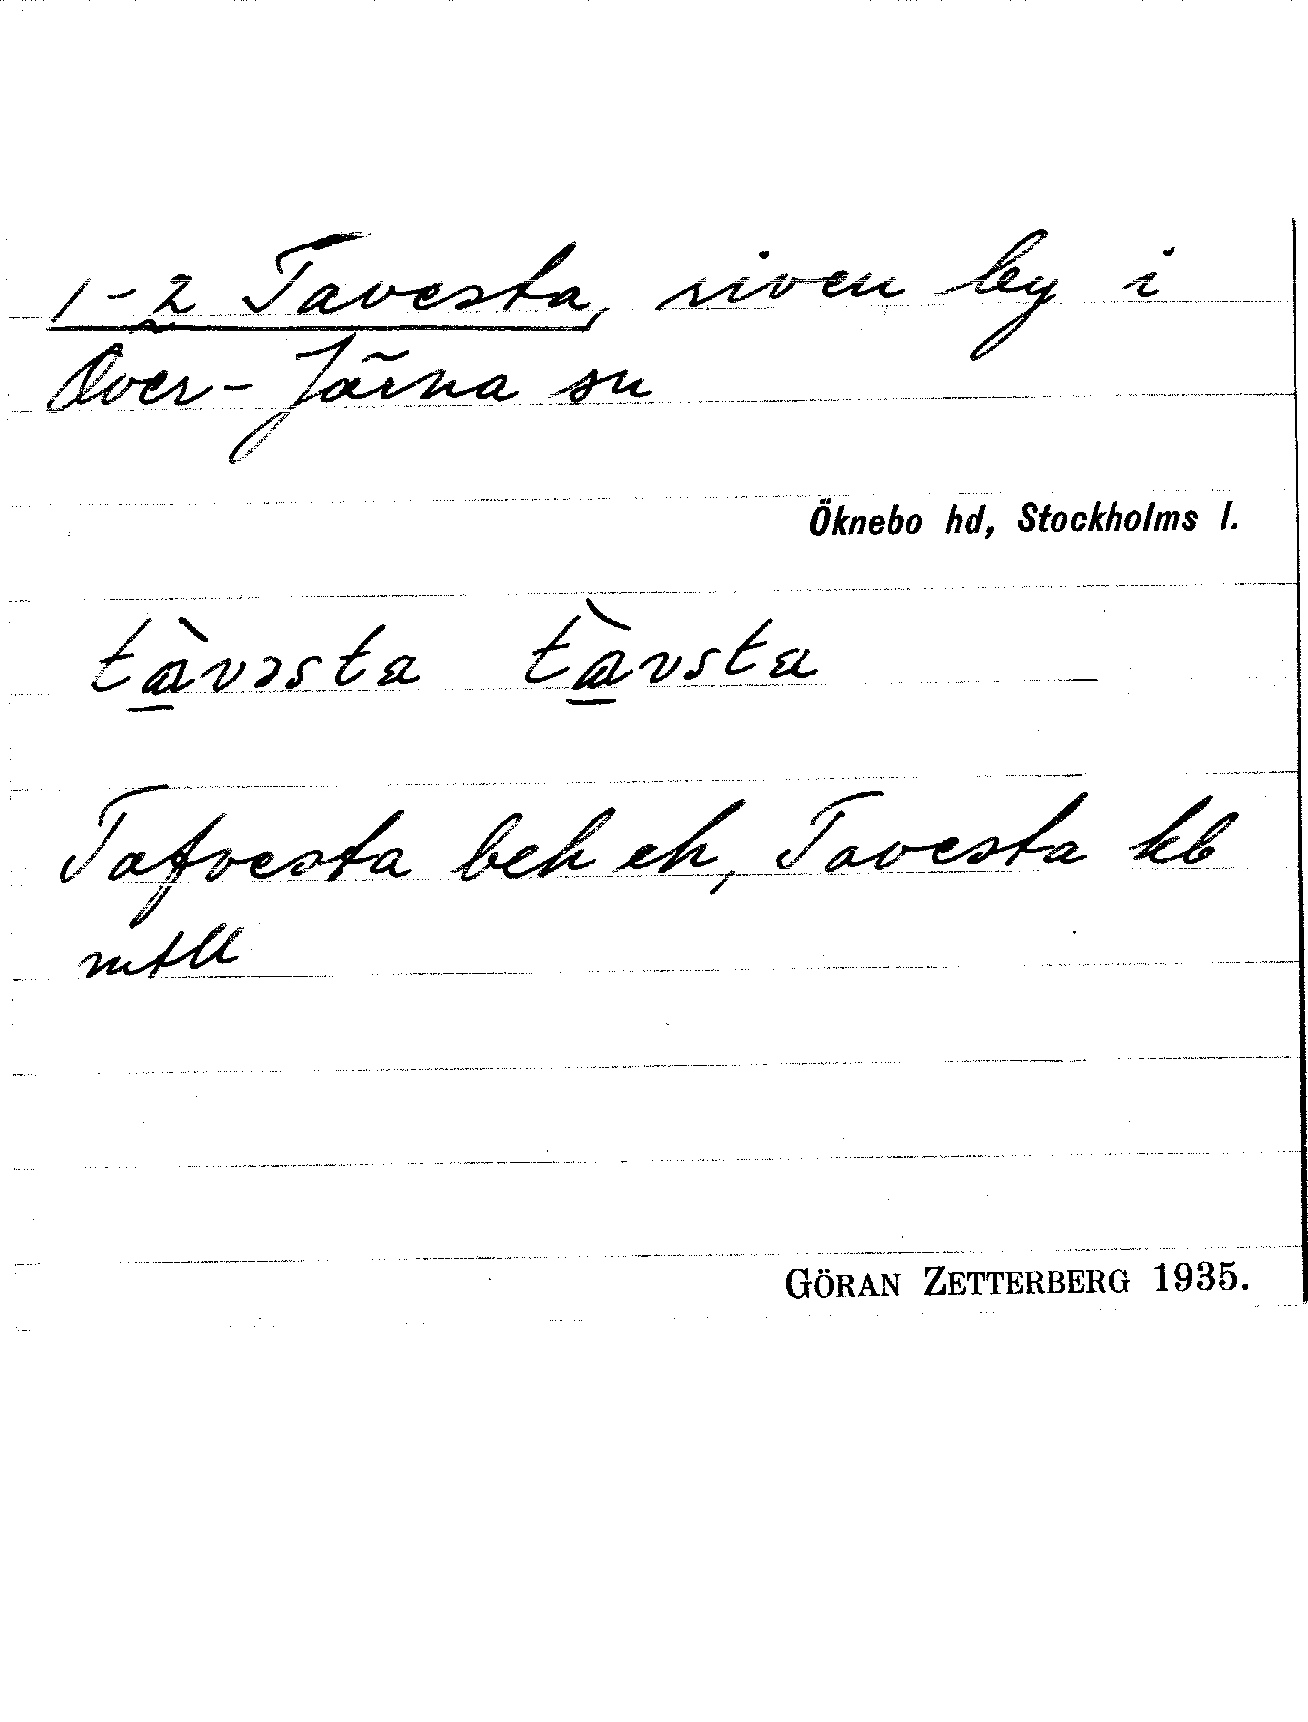 1-2 Tavesta, riven by i
Över-Järna sn
Öknebo hd, Stockholms l.
tàvəsta tàvsta
Tafvesta beh ek, Tavesta kb
mtll
GÖRAN ZETTERBERG 1935.